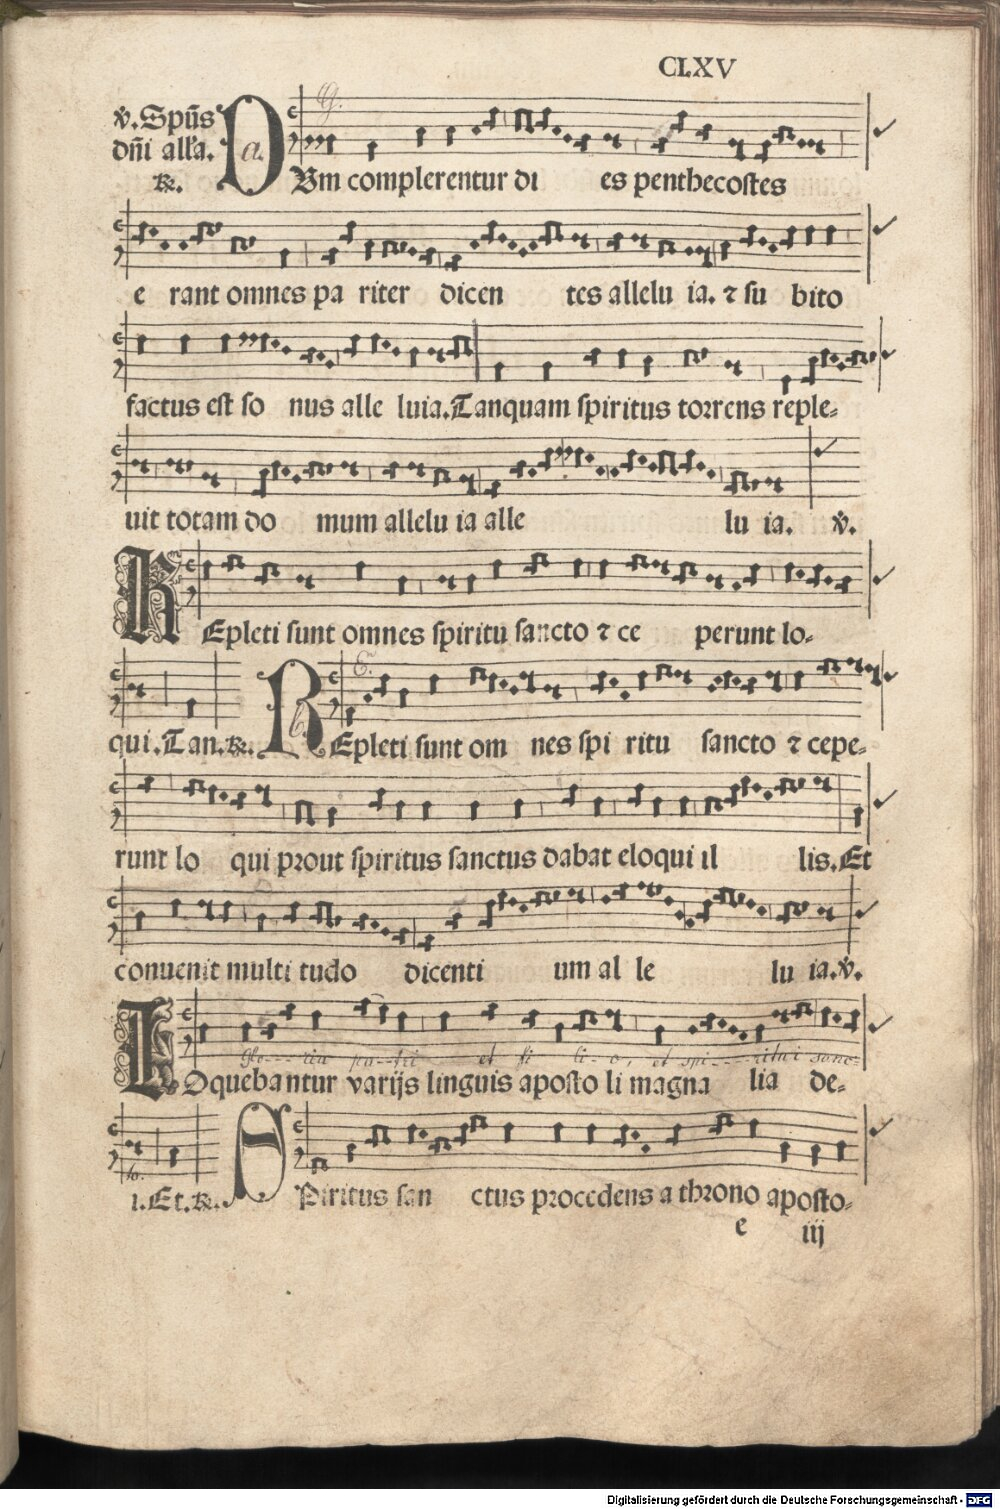 CLXV
℣. Spūs
dn̄i all'a.
℟.
G.
a.
DVm complerentur di es penthecostes
e rant omnes pa riter dicen tes allelu ia. ⁊ su bito
factus est so nus alle luia. Tanquam spiritus torrens reple⸗
uit totam do mum allelu ia alle lu ia. ℣.
REpleti sunt omnes spiritu sancto ⁊ ce perunt lo⸗
qui. Tan. ℟. REpleti sunt om nes spi ritu sancto ⁊ cepe⸗
runt lo qui prout spiritus sanctus dabat eloqui il lis. Et
conuenit multi tudo dicenti um al le lu ia. ℣.
Glo---ria pa-tri et fi li-o, et spi---ritui sanc-
LOquebantur varijs linguis aposto li magna lia de⸗
to.
i. Et. ℟. SPiritus san ctus procedens a throno aposto⸗
e iij
Digitalisierung gefördert durch die Deutsche Forschungsgemeinschaft - DFG